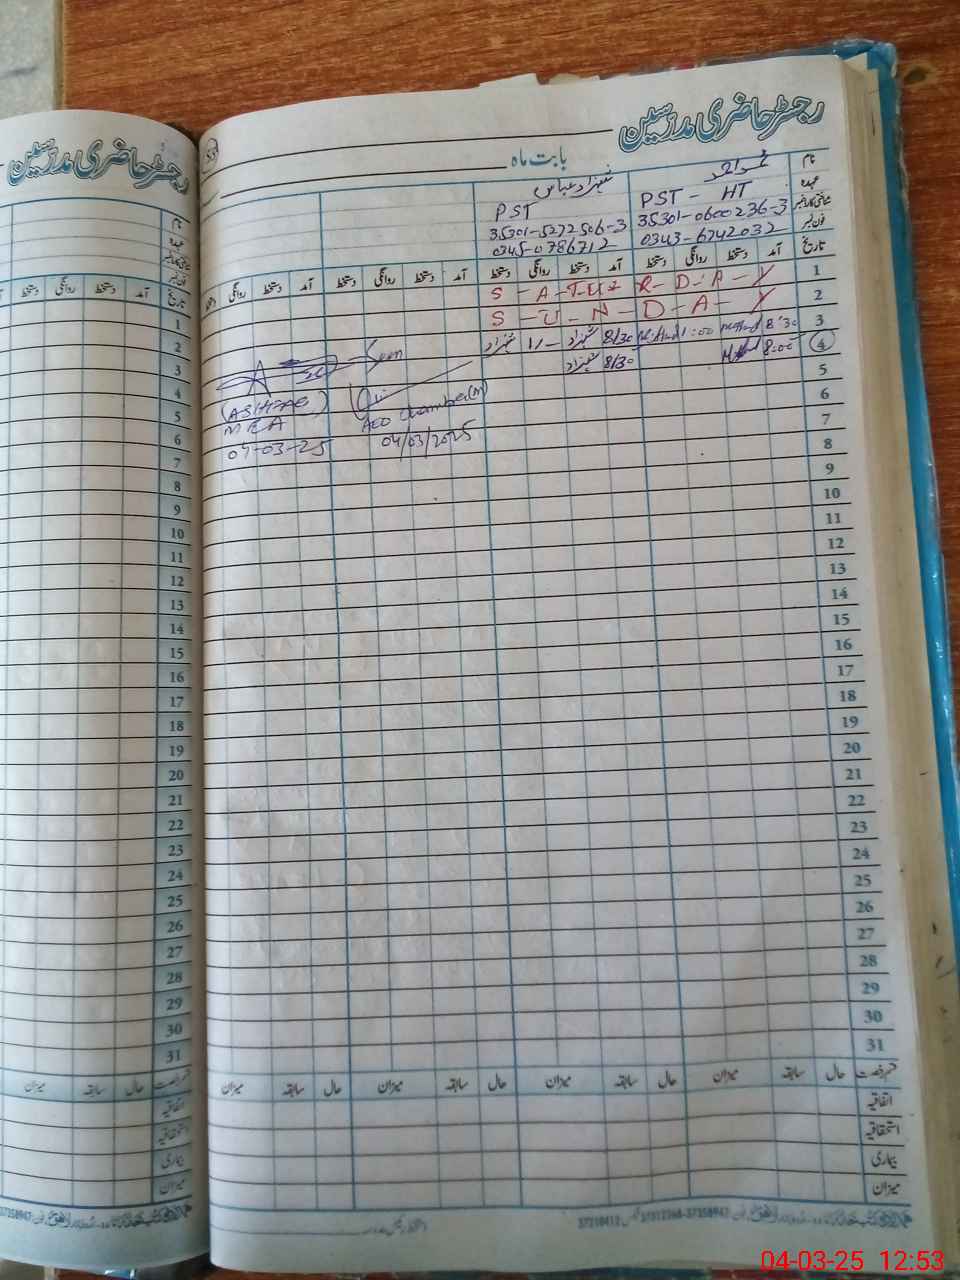 رجسٹر حاضری مدرسین
رجسٹر حاضری مدرسین
بابت ماہ
نام
شہزاد عباس
عہدہ
PST - HT
PST
شناختی کارڈ نمبر
35301-0600236-3
35301-5272506-3
فون نمبر
0343-6742032
0345-0786712
تاریخ آمد دستخط روانگی دستخط آمد دستخط روانگی دستخط آمد دستخط روانگی دستخط آمد دستخط روانگی
1 S - A - T U R - D - A - Y
2 S - U - N - D - A - Y
3 8:30 11:00 8/30 شہزاد 11 - شہزاد
4 8:00 8/30 شہزاد
5
6
7
8
9
10
11
12
13
14
15
16
17
18
19
20
21
22
23
24
25
26
27
28
29
30
31
Seen
(ASHFAQ)
MEA
04-03-25
AEO
(M)
04/03/2025
قسم رخصت حال سابقہ میزان حال سابقہ میزان حال سابقہ میزان حال سابقہ میزان
اتفاقیہ
استحقاقیہ
بیماری
میزان
نام
عہدہ
شناختی کارڈ نمبر
فون نمبر
تاریخ آمد دستخط روانگی دستخط
1
2
3
4
5
6
7
8
9
10
11
12
13
14
15
16
17
18
19
20
21
22
23
24
25
26
27
28
29
30
31
قسم رخصت حال سابقہ میزان
اتفاقیہ
استحقاقیہ
بیماری
میزان
04-03-25 12:53